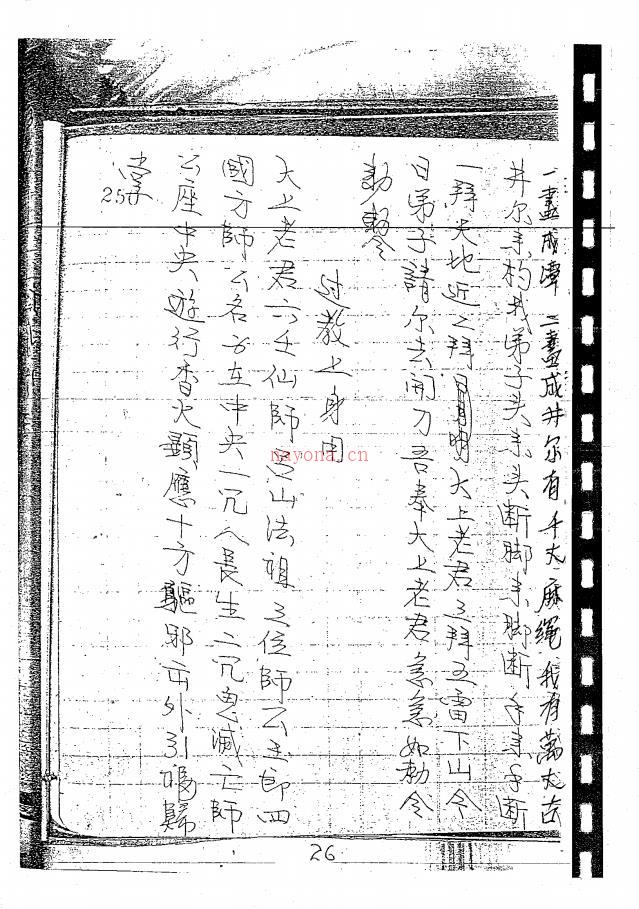 一畫成潭二畫成井尔有千丈麻绳我有萬丈古
井尔来构我弟子头来头断脚来脚断手来手断
一拜天地近二拜日月明太上老君三拜五雷下山令
日弟子請尔去開刀吾奉太上老君急急如勅令
勅令
过教上身用
太上老君六壬仙師 山法祖三位師公主郎四
國方師公名 在中央一咒人長生二咒鬼滅亡師
公座中央遊行香火顯應十方驅邪 外引 歸
掌
25
nayona.cn
26